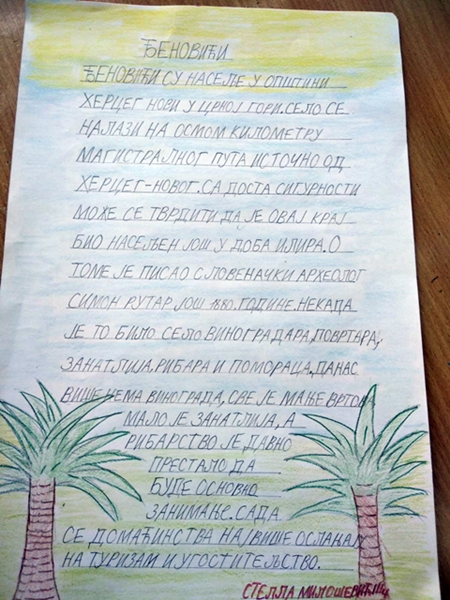 ЂЕНОВИЋИ
ЂЕНОВИЋИ СУ НАСЕЉЕ У ОПШТИНИ
ХЕРЦЕГ НОВИ У ЦРНОЈ ГОРИ. СЕЛО СЕ
НАЛАЗИ НА ОСМОМ КИЛОМЕТРУ
МАГИСТРАЛНОГ ПУТА ИСТОЧНО ОД
ХЕРЦЕГ-НОВОГ. СА ДОСТА СИГУРНОСТИ
МОЖЕ СЕ ТВРДИТИ ДА ЈЕ ОВАЈ КРАЈ
БИО НАСЕЉЕН ЈОШ У ДОБА ИЛИРА. О
ТОМЕ ЈЕ ПИСАО СЛОВЕНАЧКИ АРХЕОЛОГ
СИМОН РУТАР ЈОШ 1880. ГОДИНЕ. НЕКАДА
ЈЕ ТО БИЛО СЕЛО ВИНОГРАДАРА, ПОВРТАРА,
ЗАНАТЛИЈА, РИБАРА И ПОМОРАЦА. ДАНАС
ВИШЕ НЕМА ВИНОГРАДА, СВЕ ЈЕ МАЊЕ ВРТОВА
МАЛО ЈЕ ЗАНАТЛИЈА, А
РИБАРСТВО ЈЕ ДАВНО
ПРЕСТАЛО ДА
БУДЕ ОСНОВНО
ЗАНИМАЊЕ. САДА
СЕ ДОМАЋИНСТВА НАЈВИШЕ ОСЛАЊАЈУ
НА ТУРИЗАМ И УГОСТИТЕЉСТВО.
СТЕЛЛА МИЛОШЕВИЋ